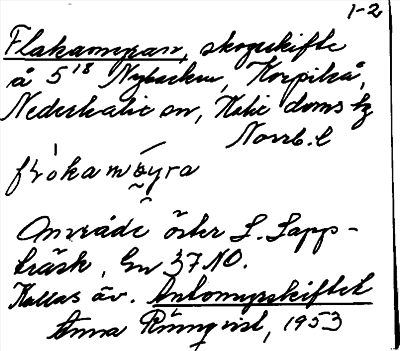 1-2
Flakamyran, skogsskifte
å 5¹⁸ Nybacken, Korpikå,
Nederkalix sn, Kalix doms tg
Norrb. l
Område öster L. Lapp-
träsk, En 37 NO.
Kallas äv. Antonmyrskiftet
Anna Rönnqvist, 1953